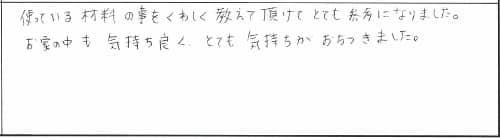 使っている材料の事をくわしく教えて頂けてとても参考になりました。
お家の中も気持ち良く、とても気持ちがおちつきました。